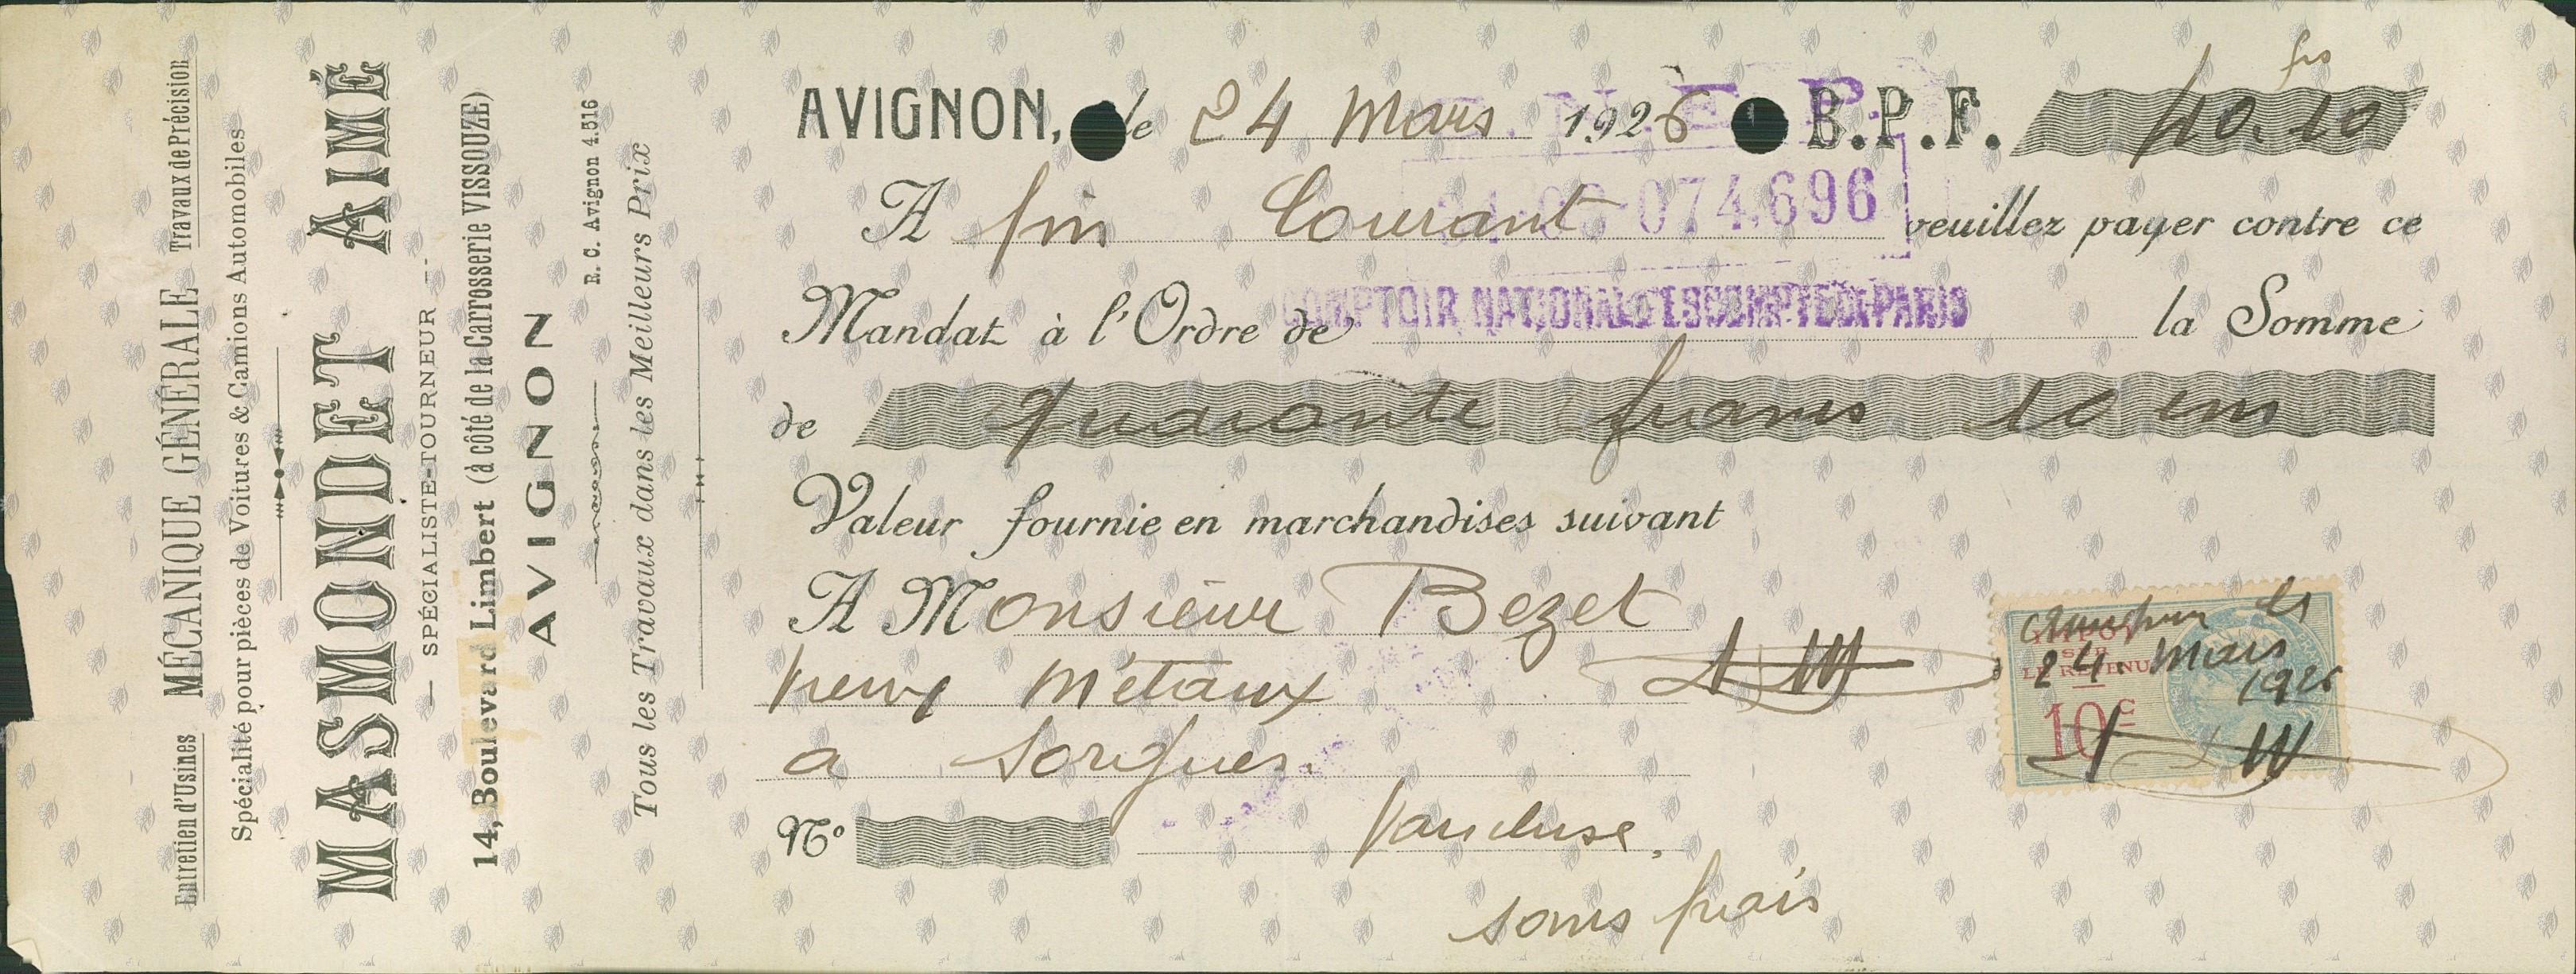 Entretien d'Usines MÉCANIQUE GÉNÉRALE Travaux de Précision
Spécialité pour pièces de Voitures & Camions Automobiles
MASMONDET AIMÉ
— SPÉCIALISTE-TOURNEUR —
14, Boulevard Limbert (à côté de la Carrosserie VISSOUZE)
AVIGNON
R. C. Avignon 4.516
Tous les Travaux dans les Meilleurs Prix
AVIGNON, le 24 Mars 1926 B.P.F. 40.10 frs
A fin Courant veuillez payer contre ce
074.696
Mandat à l'Ordre de COMPTOIR NATIONAL D'ESCOMPTE DE PARIS la Somme
de quarante francs 10 cms
Valeur fournie en marchandises suivant
A Monsieur Bezet
vieux Métaux
a Sorgues
Nº Vaucluse.
sans frais
IMPOT
SUR
LE REVENU
10c
le
24 Mars
1926